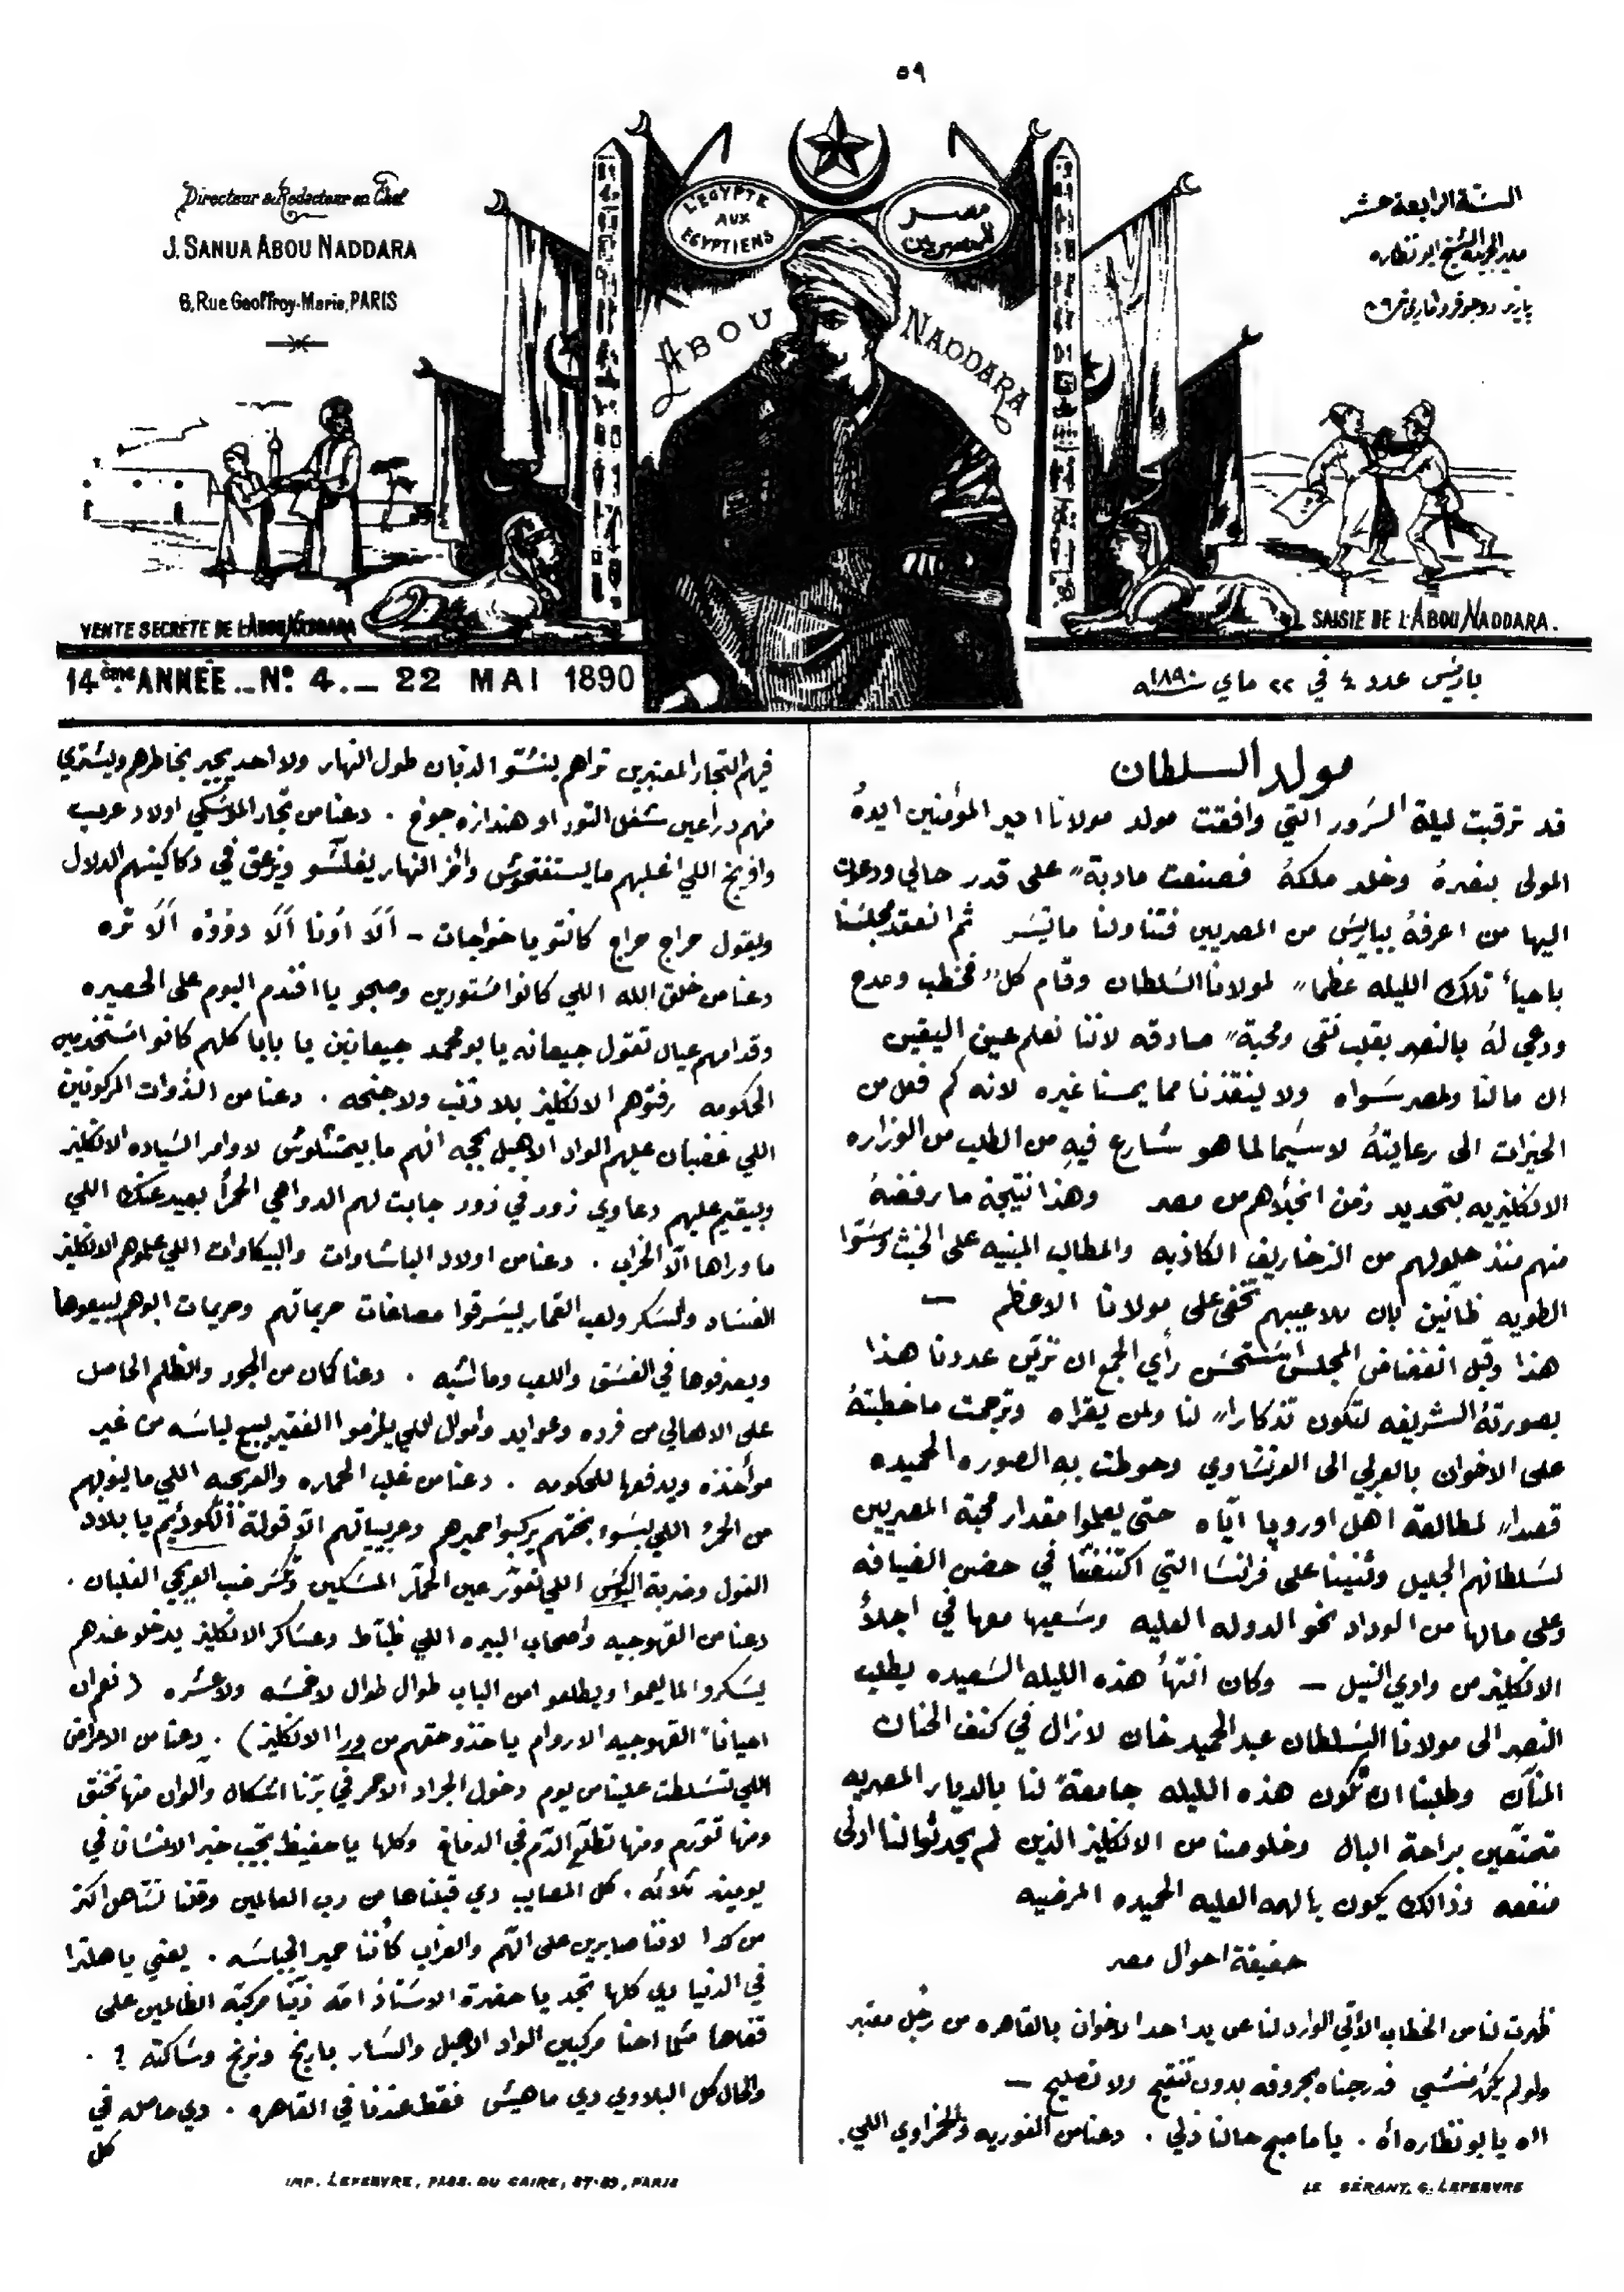 ٥٩
Directeur & Rédacteur en Chef
J. SANUA ABOU NADDARA
6, Rue Geoffroy-Marie, PARIS
L'EGYPTE
AUX
EGYPTIENS
مصر
للمصريين
السنة الرابعة عشر
مدير الجريدة الشيخ ابو نظاره
ABOU NADDARA
VENTE SECRETE DE L'ABOU NADDARA
SAISIE DE L'ABOU NADDARA.
14ème ANNÉE _ No. 4. _ 22 MAI 1890
باريس عدد ٤ في ٢٢ ماي سنة ١٨٩٠
مولد السلطان
قد ترقبت ليلة السرور التي وافقت مولد مولانا امير المؤمنين ايدهُ
المولى بنصرهُ وخلد ملكهُ فصنعت مادبة على قدر حالي ودعوت
اليها من اعرفهُ بباريس من المصريين فتناولنا ما تيسر ثم انعقد مجلسنا
باحياء تلك الليله عظما لمولانا السلطان وقام كل فخطب ومدح
ودعي لهُ بالنصر بقلب نقي ومحبة صادقه لاننا نعلم عين اليقين
ان مالنا ولمصر سواه ولا ينقذنا مما يمسنا غيره لانه كم فعل من
الخيرات الى رعايتهُ لاسيما لما هو شارع فيهِ من الطلب من الوزاره
الانكليزيه بتحديد زمن انجلاهم من مصر وهذا نتيجة ما رفضهُ
منهم منذ حلولهم من الزخاريف الكاذبه والمطالب المبنيه على الخبث وسوا
الطويه ظانين بان ملاعيبهم تخفى على مولانا الاعظم —
هذا وقبل انفضاض المجلس استحسن رأي الجمع ان نزين عددنا هذا
بصورتهُ الشريفه لتكون تذكارا لنا ولمن يقراه وترجمت ما خطبتهُ
على الاخوان بالعربي الى الفرنساوي وحوطت بهِ الصوره الحميده
قصدا لمطالعة اهل اوروپا اياه حتى يعلموا مقدار محبة المصريين
لسلطانهم الجليل وثنينا على فرانسا التي اكتنفتنا في حضن الضيافه
وعلى مالها من الوداد نحو الدوله العليه وسعيها معها في اجلاء
الانكليز من وادي النيل — وكان انتهاء هذه الليله السعيده يطلب
النصر الى مولانا السلطان عبد الحميد خان لازال في كنف الحنان
المنان وطلبنا ان تكون هذه الليله جامعة لنا بالديار المصريه
متمتعين براحة البال وخلومنا من الانكليز الذين لم يحدثوا لنا ادنى
منفعه وذالك يكون بالهمه العليه الحميده المرضيه
حقيقة احوال مصر
ظهرت لنا من الخطاب الأتي الوارد لنا عن يد احد الاخوان بالقاهره من رجل معتبر
ولو لم يكن منشي فدرجناه بحروفه بدون تنقيح ولا تصليح —
اه يا بو نظاره أه . ياما صبح حالنا ذلي . دعنا من الغوريه والحمزاوي اللي .
فيهم التجار المعتبرين تراهم بنشتو الدبان طول النهار ولا احد يجير بخاطرهم ويشتري
منهم دراعين شغل التور او هندازه جوخ . دعنا من تجار الموسكي اولاد عرب
وافرنج اللي اغلبهم ما يستفتحوش وآخر النهار يفلسو ويزعق في دكاكينهم الدلال
ويقول حراج حراج كانتو يا خواجات - ألا أونا ألا دووه ألا تره
دعنا من خلق الله اللي كانوا مستورين وصبحو يا افندم اليوم على الحصيره
وقدامهم عيال تقول جيعانه يا بو محمد جيعانين يا بابا كلهم كانوا مستخدمين
الحكومه رفتوهم الانكليز بلا ذنب ولا جنحه . دعنا من الذوات المركونين
اللي غضبان عليهم الواد الاهبل بحجه انهم ما بيمتثلوش لاوامر السياده الانكليز
وبيقيم عليهم دعاوي زور في زور جابت لهم الدواهي الحمرا بعيد عنك اللي
ما وراها الا الخراب . دعنا من اولاد الباشاوات والبيكاوات اللي علموهم الانكليز
الفساد والسكر ولعب القمار بيسرقوا مصاغات حريماتهم وحريمات ابوهم بيبيعوها
ويصرفوها في الفسق واللعب وما اشبه . دعنا كمان من الجور والظلم الحاصل
على الاهالي من فرده وعوايد واموال اللي يلزموا الفقير يبيع لباسه من غير
موأخذه ويدفعها للحكومه . دعنا من غلب الحماره والعربجيه اللي ما ينوبهم
من الحمر اللي بسوا بختهم يركبوا حميرهم وعربياتهم الا قولة الكوديم يا بلاد
الفول وضربة البوكس اللي تعور عين الحمار المسكين وتكسر ضب العربجي الغلبان .
دعنا من القهوجيه واصحاب البيره اللي ظباط وعساكر الانكليز يدخلو عندهم
يسكروا لما يعموا ويطلعوا من الباب طوال طوال لا خمسه ولا عشره ( نعم ان
احيانا القهوجيه الاروام ياخذو حقهم من ورا الانكليز ) . دعنا من الامراض
اللي تسلطت علينا من يوم دخول الجراد الاحمر في برنا اشكال والوان منها تخنق
ومنها تورم ومنها تطلع الدم في الدماغ وكلها يا حفيظ تجيب خبر الانسان في
يومين ثلاثه . كل المصايب دي قبلناها من رب العالمين وقلنا نستاهل اكتر
من كدا لاننا صابرين على الهم والعذاب كأننا حمير الجباسه . يعني يا هلترا
في الدنيا دي كلها تجد يا حضرة الاستاذ امه زينا مركبه الظالمين على
قفاها مثلما احنا مركبين الواد الاهبل والسار بارنج ونرنج وساكته ? .
والحال كل البلاوي دي ماهيش فقط عندنا في القاهره . دي حاصله في
كل
IMP. LEFEBVRE, PASS. DU CAIRE, 87-89, PARIS
LE GÉRANT, G. LEFEBVRE